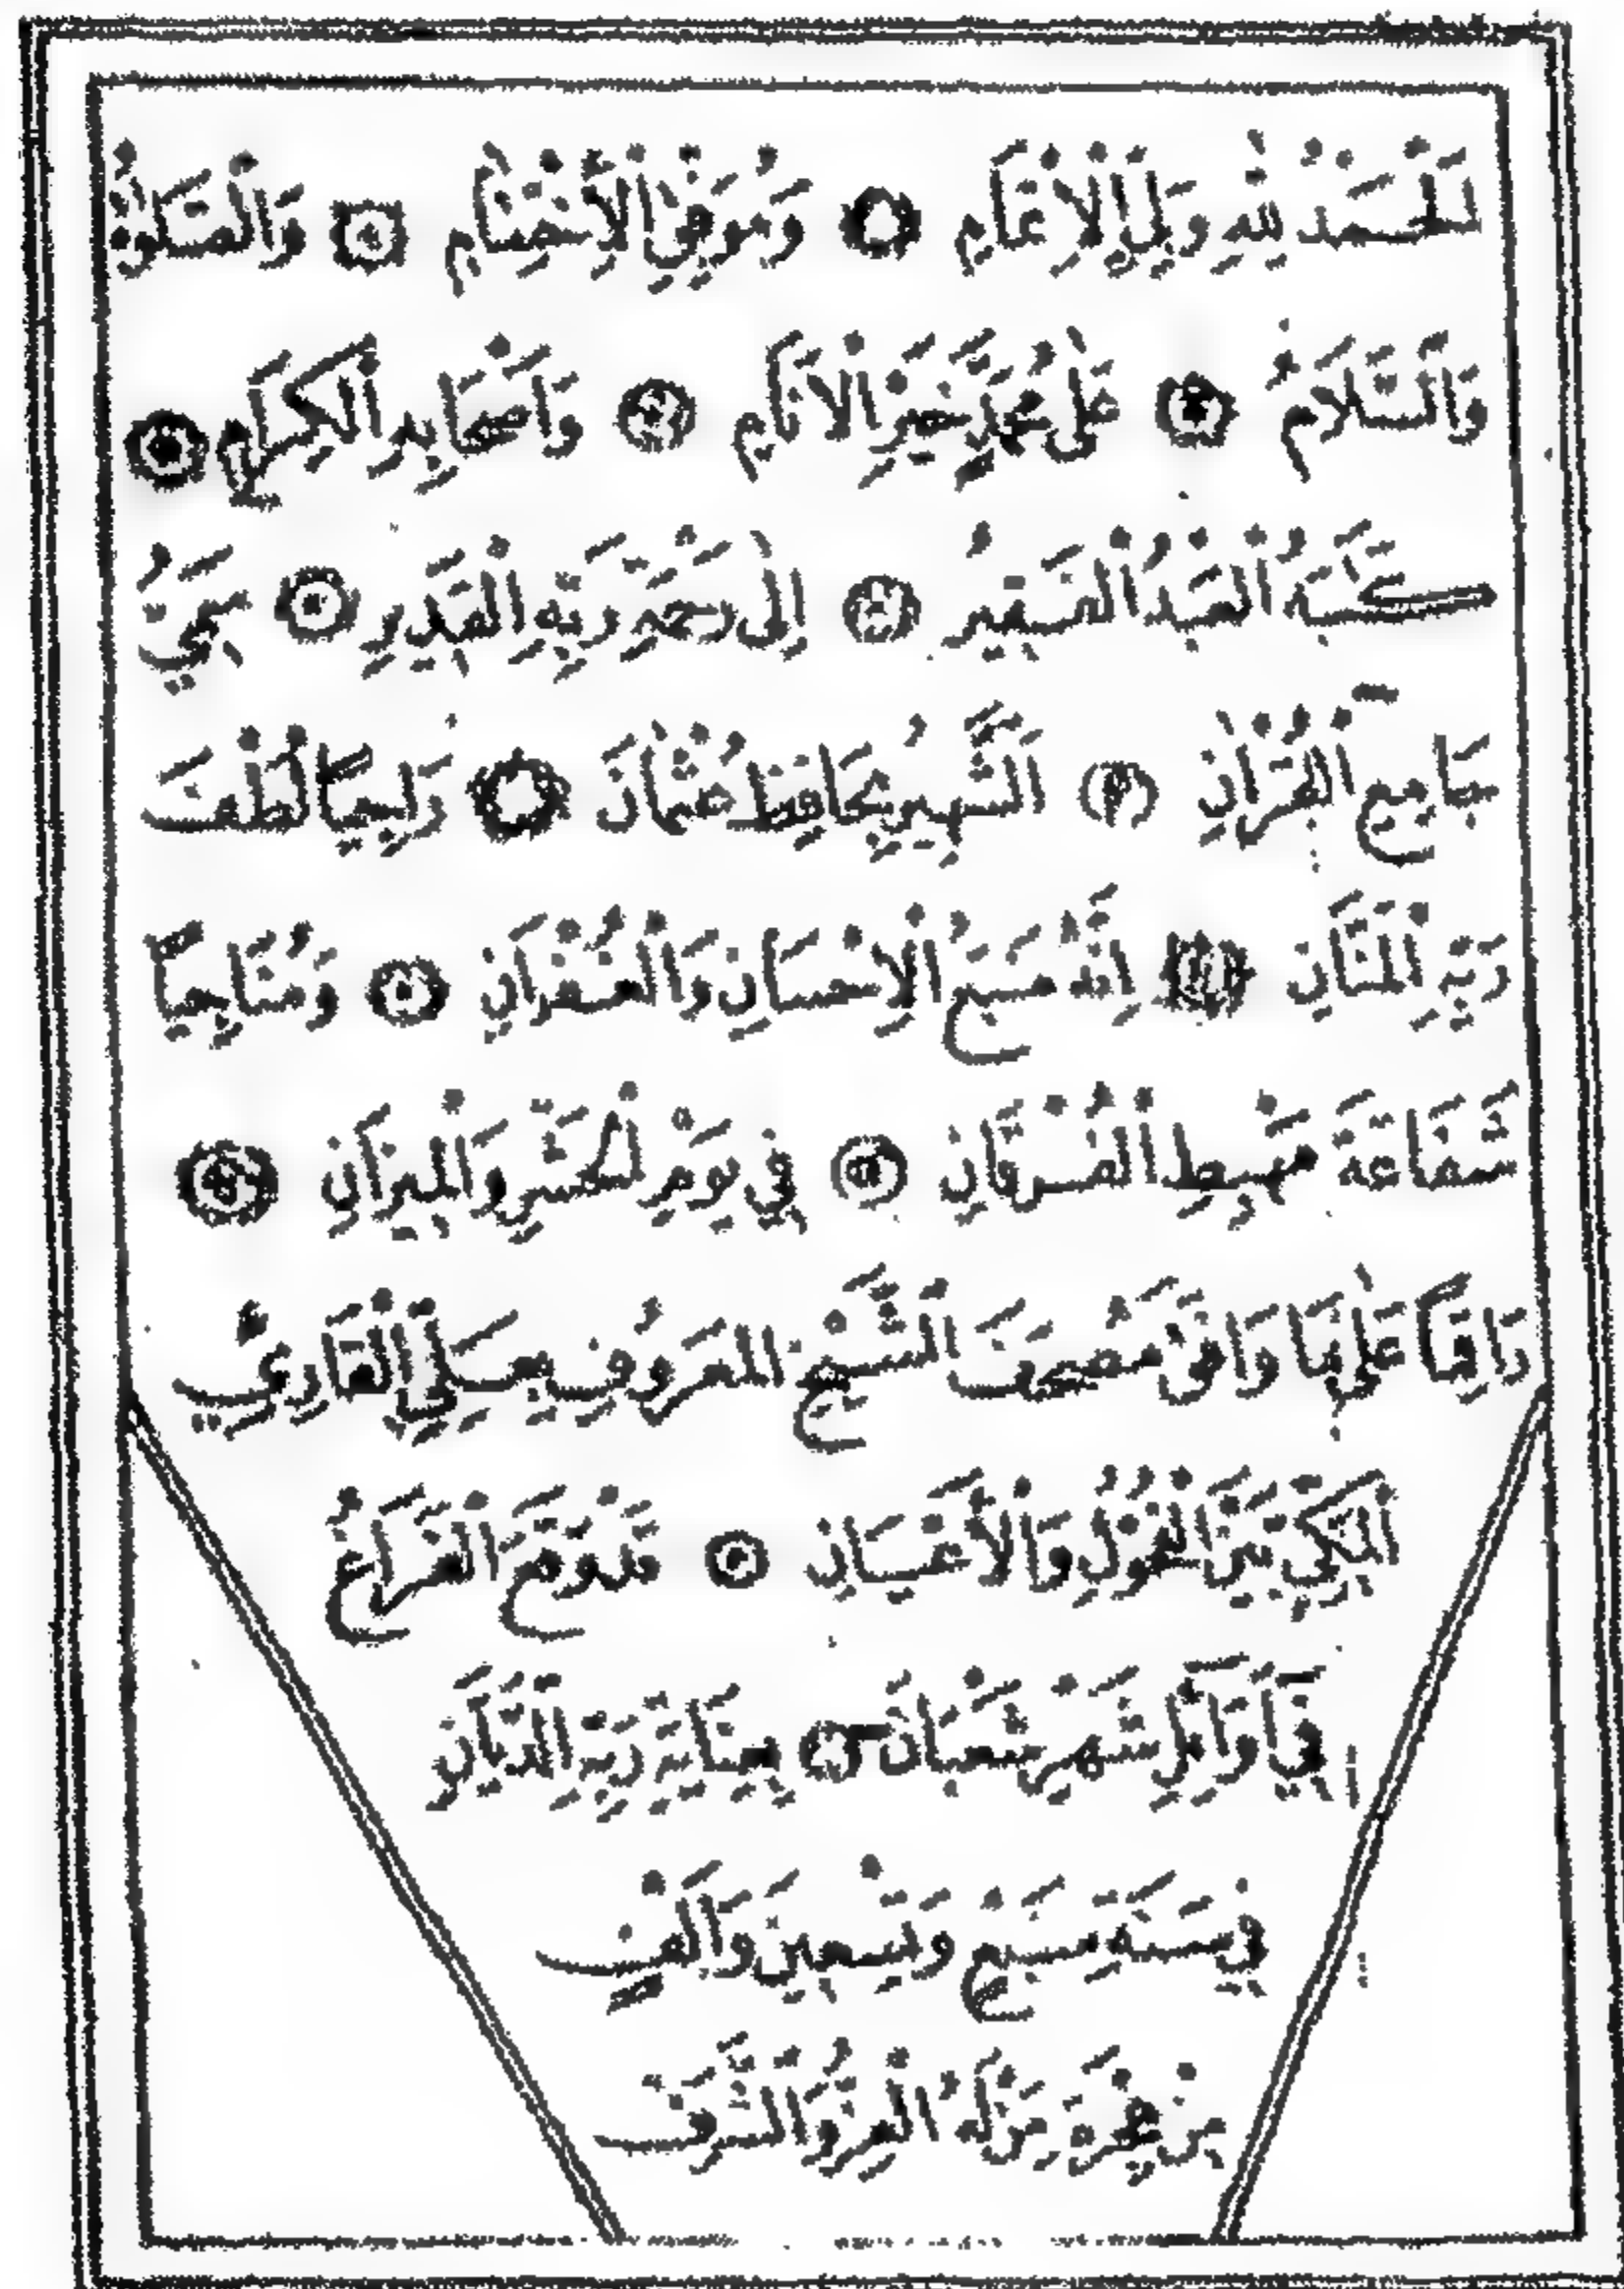 اَلْحَمْدُ لِلّٰهِ وَلِيِّ الْاِنْعَامِ وَمُوَفِّقِ الْاِخْتِتَامِ وَالصَّلٰوةُ
وَالسَّلَامُ عَلٰى مُحَمَّدٍ خَيْرِ الْاَنَامِ وَاَصْحَابِهِ الْكِرَامِ
كَتَبَهُ الْعَبْدُ الْفَقِيرُ اِلٰى رَحْمَةِ رَبِّهِ الْقَدِيرِ سَمِيُّ
جَامِعِ الْقُرْاٰنِ اَلشَّهِيرُ بِحَافِظْ عُثْمَانَ رَاجِيًا لُطْفَ
رَبِّهِ الْمَنَّانِ اِنَّهُ مَنْبَعُ الْاِحْسَانِ وَالْغُفْرَانِ وَمُنَاجِيًا
شَفَاعَةَ مَهْبِطِ الْفُرْقَانِ فِي يَوْمِ الْحَشْرِ وَالْمِيزَانِ
رَاقِمًا عَلٰى مَا وَافَقَ مُصْحَفَ الشَّيْخِ الْمَعْرُوفِ بِعَلِيِّ الْقَارِيِّ
الْمَكِّيِّ بَيْنَ الْفُحُولِ وَالْاَعْيَانِ قَدْ وَقَعَ الْفَرَاغُ
فِي اَوَائِلِ شَهْرِ شَعْبَانَ بِعِنَايَةِ رَبِّهِ الدَّيَّانِ
فِي سَنَةِ سَبْعٍ وَتِسْعِينَ وَاَلْفٍ
مِنْ هِجْرَةِ مَنْ لَهُ الْعِزُّ وَالشَّرَفُ